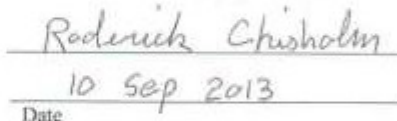 Roderick Chisholm
10 Sep 2013
Date